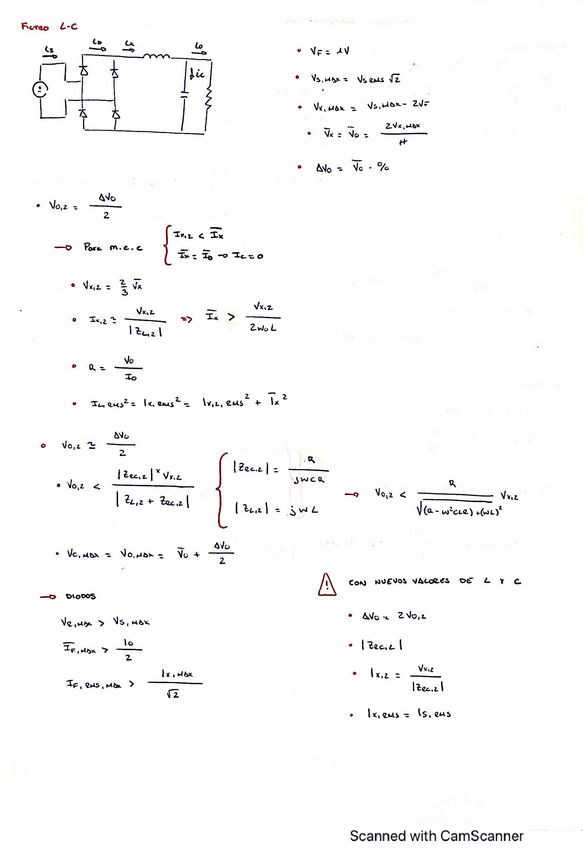 FILTRO L-C
is
io
ix
io
ic
• VF = 1V
• Vs,MAX = Vs RMS √2
• Vx,MAX = Vs,MAX - 2VF
• V̅x = V̅o = 2Vx,MAX / π
• ΔVo = V̅o · %
• Vo,2 = ΔVo / 2
→ Para m.c.c { Ix,2 < I̅x
I̅x = I̅o → Ic = 0
• Vx,2 = 2/3 V̅x
• Ix,2 ≃ Vx,2 / |ZL,2| => I̅x > Vx,2 / 2ωo L
• R = Vo / Io
• IL,RMS² = Ix,RMS² = Ix,2,RMS² + I̅x²
• Vo,2 ≃ ΔVo / 2
• Vo,2 < |ZRC,2| * Vx,2 / |ZL,2 + ZRC,2| { |ZRC,2| = R / jωCR
|ZL,2| = jωL
→ Vo,2 < R / √(R - ω²CLR) + (ωL)² Vx,2
• VC,MAX = Vo,MAX = V̅o + ΔVo / 2
→ DIODOS
VR,MAX > Vs,MAX
I̅F,MAX > Io / 2
IF,RMS,MAX > Ix,MAX / √2
⚠ CON NUEVOS VALORES DE L Y C
• ΔVo = 2Vo,2
• |ZRC,2|
• Ix,2 = Vx,2 / |ZRC,2|
• Ix,RMS = Is,RMS
Scanned with CamScanner